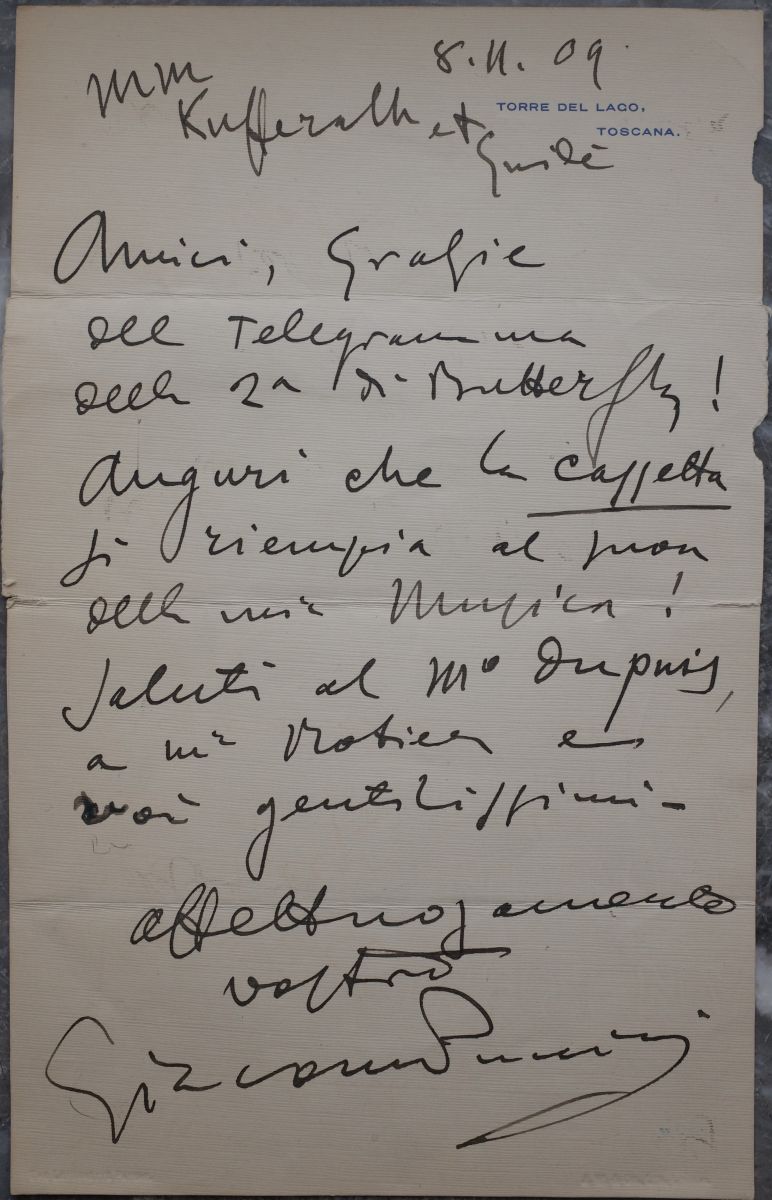 8.11.09
MM
TORRE DEL LAGO,
TOSCANA.
Kufferath et
Guidè
Amici, Grazie
del Telegramma
della 2a di Butterfly!
Auguri che la cassetta
si riempia al suon
della mia Musica!
Saluti al Mo Dupuis,
a
voi gentilissimi -
affettuosamente
vostro
Giacomo Puccini